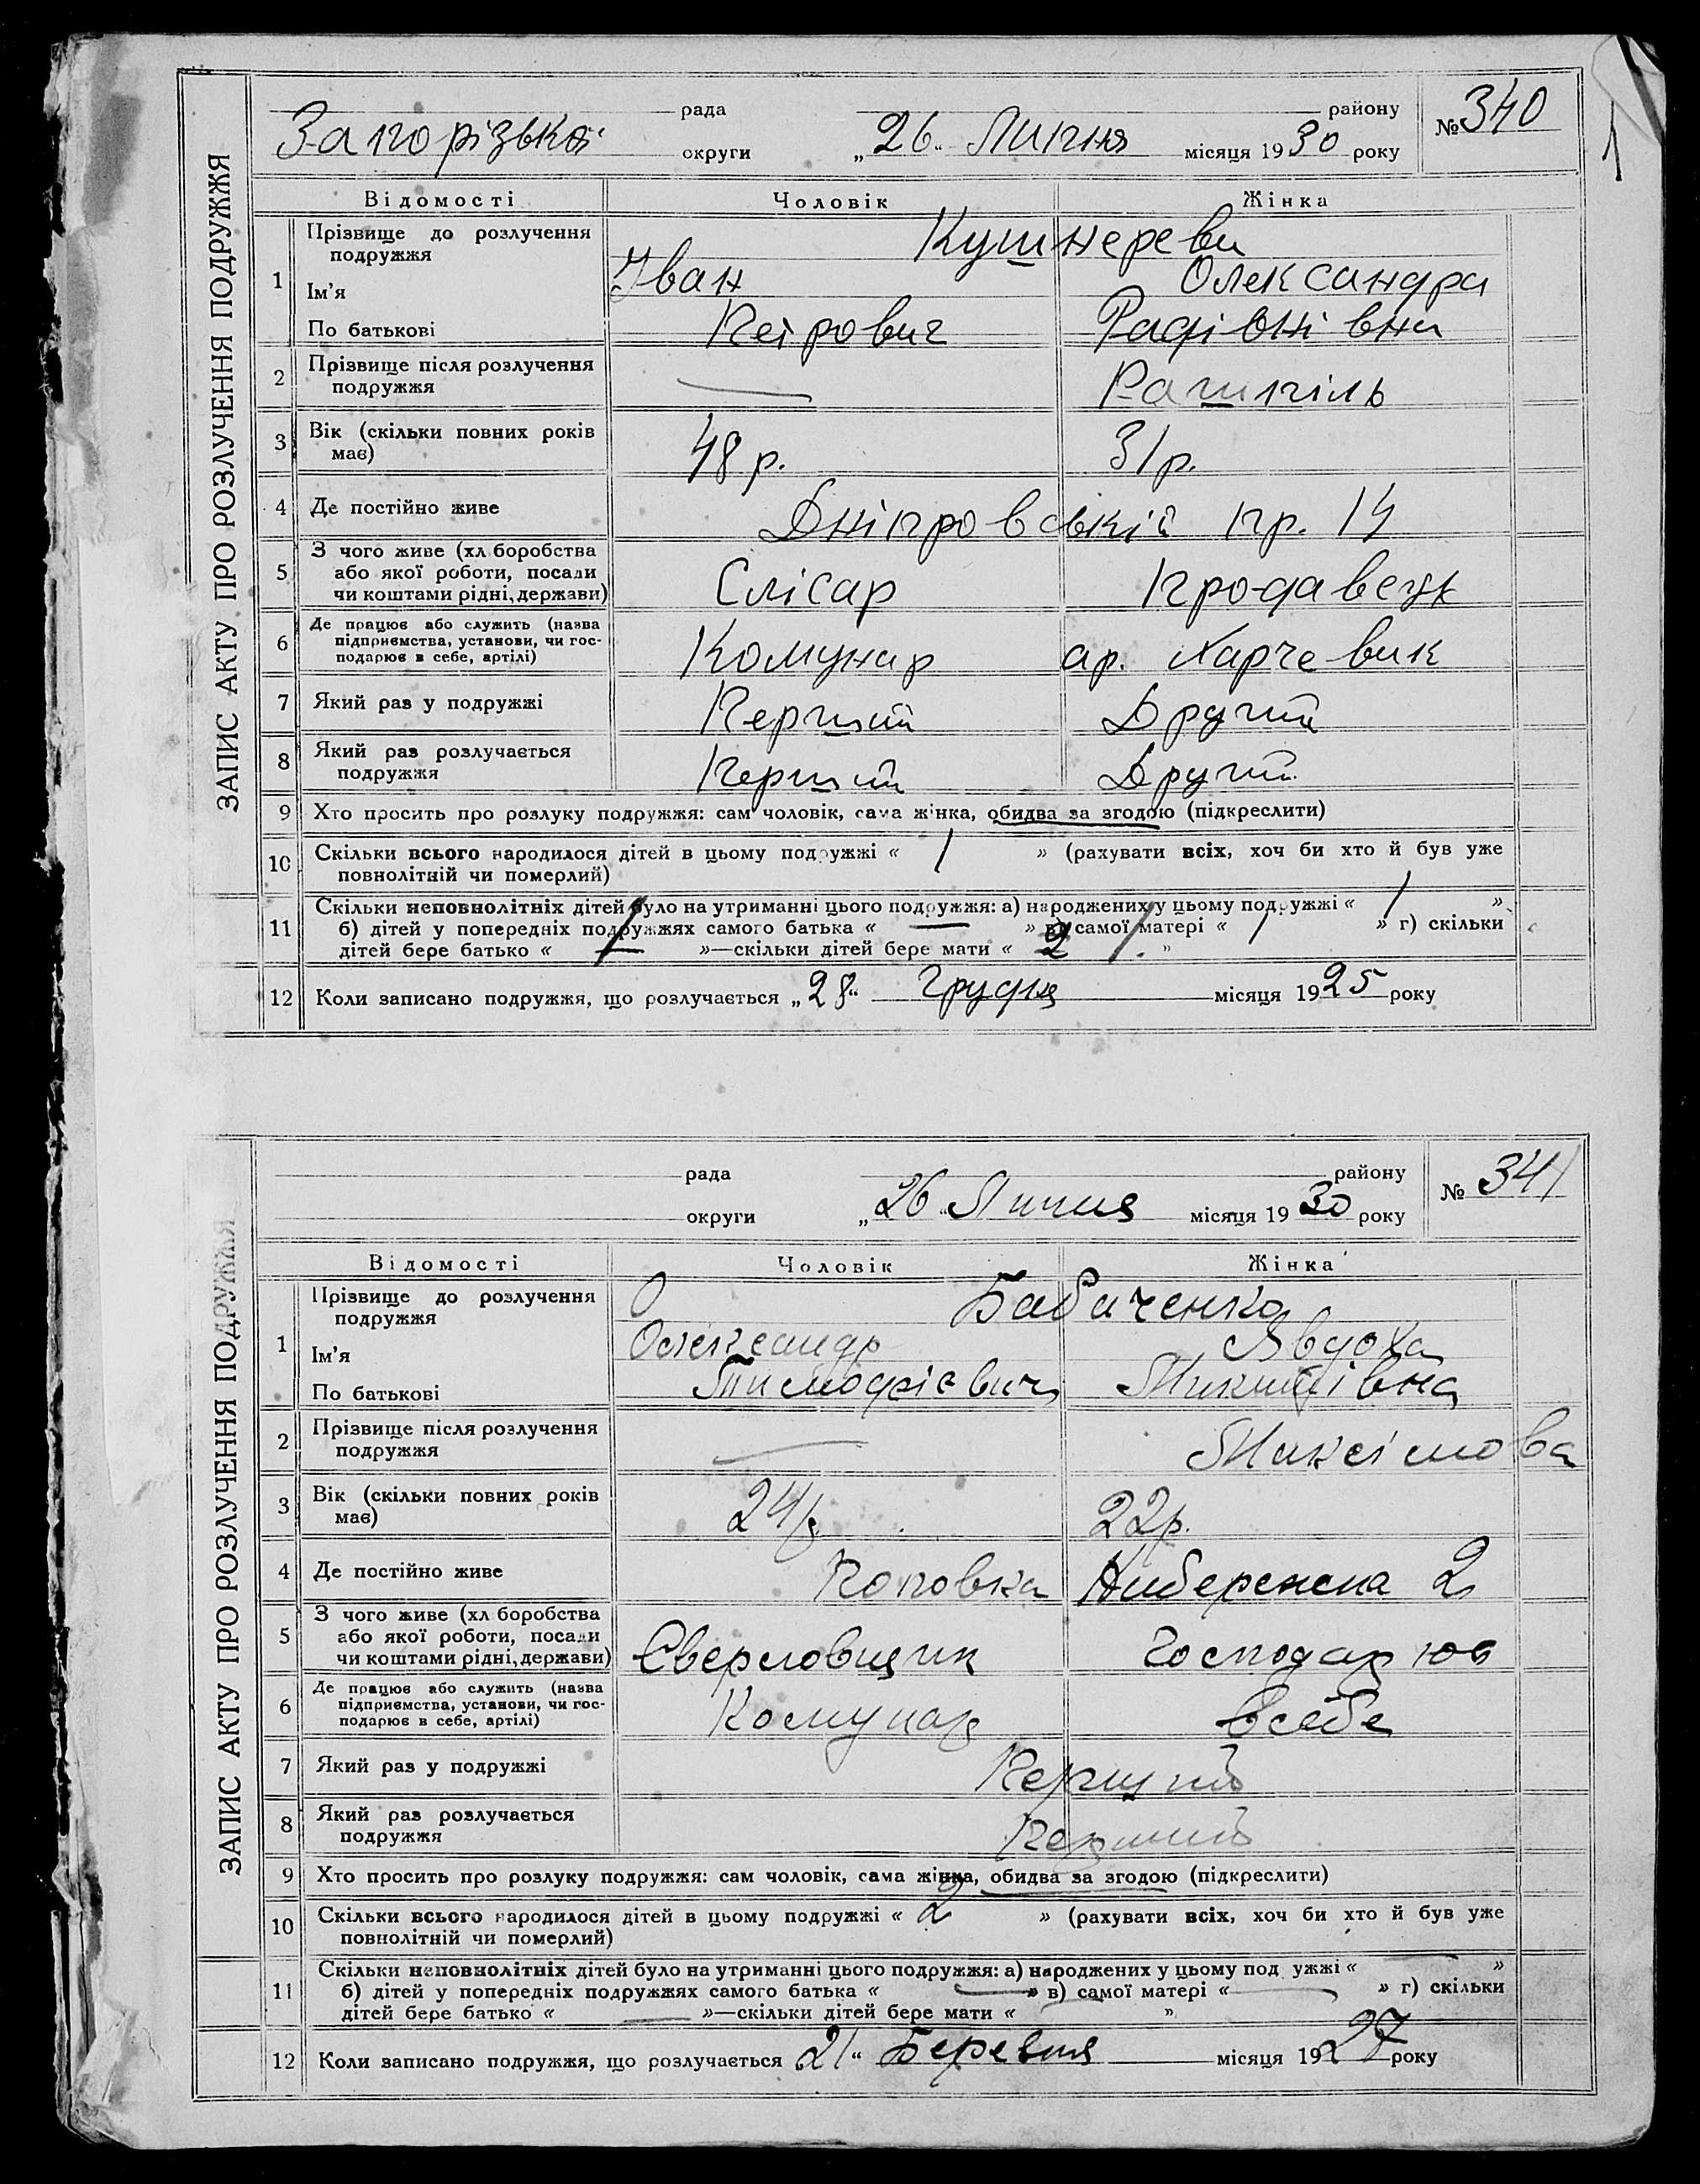 ЗАПИС АКТУ ПРО РОЗЛУЧЕННЯ ПОДРУЖЖЯ
рада району № 340
Запорізької округи „26“ Липня місяця 1930 року
Відомості Чоловік Жінка
1 Прізвище до розлучення подружжя Кушнереви
Ім’я Іван Олександра
По батькові Петрович Радіонівна
2 Прізвище після розлучення подружжя — Рашпіль
3 Вік (скільки повних років має) 48 р. 31 р.
4 Де постійно живе Дніпровській пр. 14
5 З чого живе (хлiборобства або якої роботи, посади чи коштами рідні, держави) Слісар продавець
6 Де працює або служить (назва підприємства, установи, чи господарює в себе, артілі) Комунар ар. Харчевик
7 Який раз у подружжі Перший Другий
8 Який раз розлучається подружжя Перший Другий
9 Хто просить про розлуку подружжя: сам чоловік, сама жінка, обидва за згодою (підкреслити)
10 Скільки всього народилося дітей в цьому подружжі « 1 » (рахувати всіх, хоч би хто й був уже
повнолітній чи померлий)
11 Скільки неповнолітніх дітей було на утриманні цього подружжя: а) народжених у цьому подружжі « 1 »
б) дітей у попередніх подружжях самого батька « — » в) самої матері « 1 » г) скільки
дітей бере батько « — »—скільки дітей бере мати « 2 »
12 Коли записано подружжя, що розлучається „28“ Грудня місяця 1925 року
ЗАПИС АКТУ ПРО РОЗЛУЧЕННЯ ПОДРУЖЖЯ
рада району № 341
округи „26“ Липня місяця 1930 року
Відомості Чоловік Жінка
1 Прізвище до розлучення подружжя Бабаченко
Ім’я Олександр Явдоха
По батькові Тимофієвич Микитівна
2 Прізвище після розлучення подружжя — Максімова
3 Вік (скільки повних років має) 24 р. 22 р.
4 Де постійно живе Поповка Набережна 2
5 З чого живе (хлiборобства або якої роботи, посади чи коштами рідні, держави) Сверловщик Господарює
6 Де працює або служить (назва підприємства, установи, чи господарює в себе, артілі) Комунар в себе
7 Який раз у подружжі Перший
8 Який раз розлучається подружжя Перший
9 Хто просить про розлуку подружжя: сам чоловік, сама жінка, обидва за згодою (підкреслити)
10 Скільки всього народилося дітей в цьому подружжі « 2 » (рахувати всіх, хоч би хто й був уже
повнолітній чи померлий)
11 Скільки неповнолітніх дітей було на утриманні цього подружжя: а) народжених у цьому подружжі « — »
б) дітей у попередніх подружжях самого батька « — » в) самої матері « — » г) скільки
дітей бере батько « — »—скільки дітей бере мати « »
12 Коли записано подружжя, що розлучається „21“ Березня місяця 1927 року